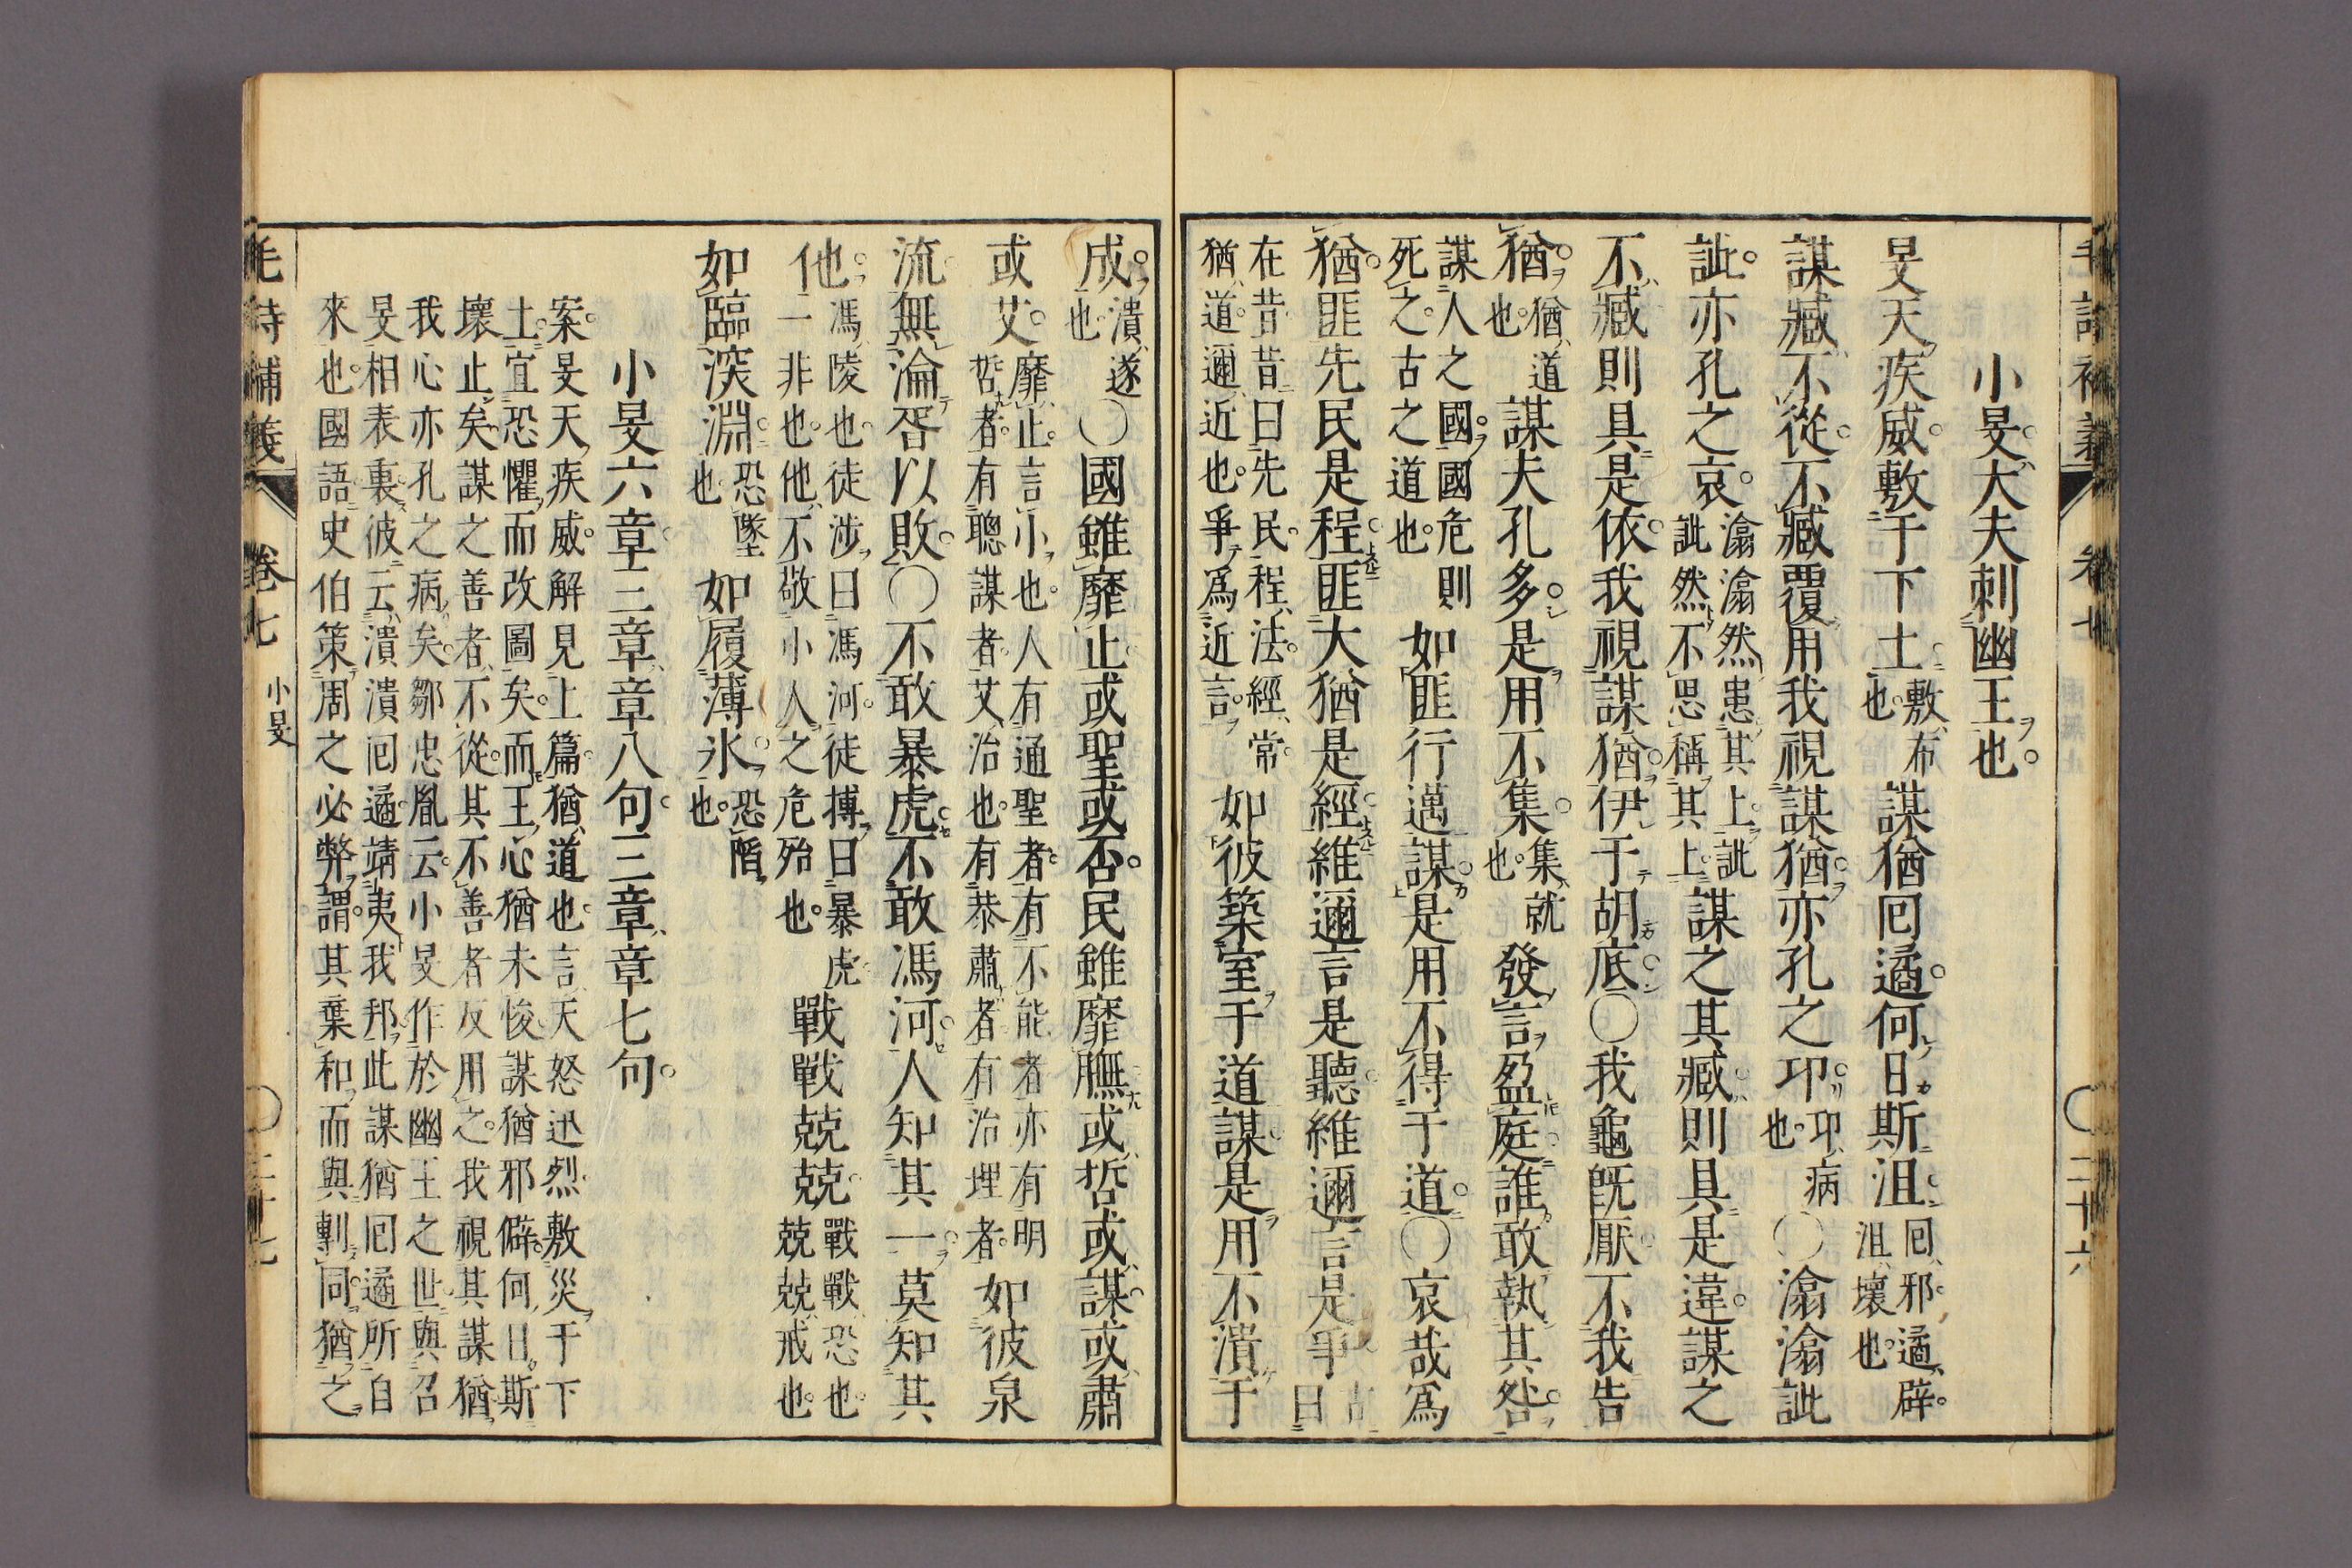 小旻。大夫刺幽王也。
旻天疾威。敷于下土。敷、布也。謀猶囘遹。何日斯沮。囘、邪。遹、辟。沮、壞也。
謀臧不從。不臧覆用我視謀猶。亦孔之邛。邛、病也。〇潝潝訿
訿。亦孔之哀。潝潝然患其上。訿訿然不思稱其上。謀之其臧。則具是違。謀之
不臧則具是依。我視謀猶。伊于胡底。〇我龜旣厭不我告
猶。猶、道也。謀夫孔多。是用不集。集、就也。發言盈庭。誰敢執其咎。
謀人之國。國危則死之。古之道也。如匪行邁謀。是用不得于道。〇哀哉爲
猶。匪先民是程。匪大猶是經。維邇言是聽。維邇言是爭。古曰
在昔。昔曰先民。程、法。經、常。猶、道。邇、近也。爭爲近言。如彼築室于道謀。是用不潰于
成。潰、遂也。〇國雖靡止。或聖或否。民雖靡膴。或哲或謀。或肅
或艾。靡止。言小也。人有通聖者。有不能者。亦有明哲者。有聰謀者。艾、治也。有恭肅者。有治理者。如彼泉
流。無淪胥以敗。〇不敢暴虎。不敢馮河。人知其一。莫知其
他。馮、陵也。徒涉曰馮河。徒搏曰暴虎。一非也。他、不敬小人之危殆也。戰戰兢兢。戰戰、恐也。兢兢、戒也。
如臨深淵。恐墜也。如履薄冰。恐陷也。
小旻六章。三章、章八句。三章、章七句。
案。旻天疾威。解見上篇。猶、道也。言天怒迅烈。敷災于下
土。宜恐懼而改圖矣。而王心猶未悛。謀猶邪僻。何日斯
壞止矣。謀之善者、不從。其不善者反用之。我視其謀猶、
我心亦孔之病矣。鄒忠胤云。小旻作於幽王之世。與召
旻相表裏。彼云、潰潰囘遹。靖夷我邦。此謀猶囘遹所自
來也。國語。史伯策周之必弊。謂。其棄和而與剸同。猶之
毛詩補義　卷七　小旻　〇二十七
卷七　〇二十六